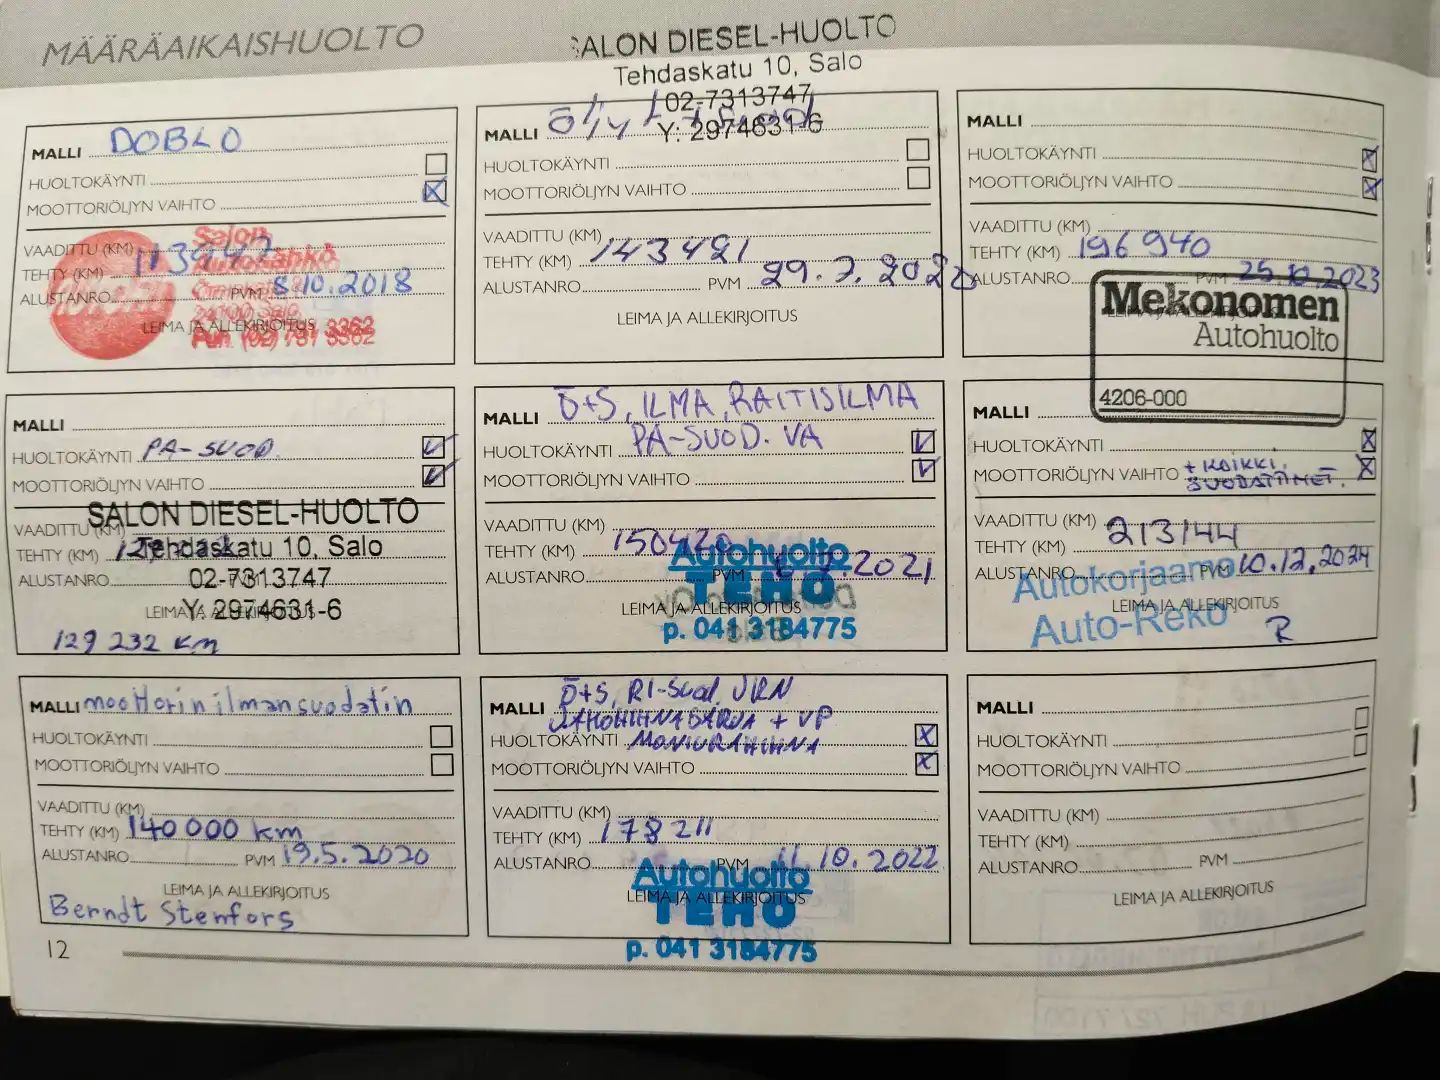 MÄÄRÄAIKAISHUOLTO
SALON DIESEL-HUOLTO
Tehdaskatu 10, Salo
02-7313747
Y: 2974631-6
MALLI DOBLO
HUOLTOKÄYNTI
MOOTTORIÖLJYN VAIHTO
VAADITTU (KM)
TEHTY (KM)
ALUSTANRO PVM 8.10.2018
LEIMA JA ALLEKIRJOITUS
Salon
Puh. (02) 731 3362
MALLI
HUOLTOKÄYNTI
MOOTTORIÖLJYN VAIHTO
VAADITTU (KM)
TEHTY (KM) 143421
ALUSTANRO PVM
LEIMA JA ALLEKIRJOITUS
MALLI
HUOLTOKÄYNTI
MOOTTORIÖLJYN VAIHTO
VAADITTU (KM)
TEHTY (KM) 196940
ALUSTANRO PVM 25.10.2023
Mekonomen
Autohuolto
4206-000
MALLI
HUOLTOKÄYNTI PA-SUOD.
MOOTTORIÖLJYN VAIHTO
SALON DIESEL-HUOLTO
VAADITTU (KM)
TEHTY (KM) Tehdaskatu 10, Salo
ALUSTANRO 02-7313747
LEIMA JA ALLEKIRJOITUS
Y: 2974631-6
129 232 km
MALLI Ö+S, ILMA, RAITISILMA
HUOLTOKÄYNTI PA-SUOD. VA
MOOTTORIÖLJYN VAIHTO
VAADITTU (KM)
TEHTY (KM) 150420
ALUSTANRO PVM 2021
Autohuolto
TEHO
LEIMA JA ALLEKIRJOITUS
p. 041 3184775
MALLI
HUOLTOKÄYNTI
MOOTTORIÖLJYN VAIHTO + KAIKKI
SUODATTIMET.
VAADITTU (KM)
TEHTY (KM) 213144
ALUSTANRO PVM 10.12.2024
Autokorjaamo
LEIMA JA ALLEKIRJOITUS
Auto-Reko
R
MALLI moottorin ilmansuodatin
HUOLTOKÄYNTI
MOOTTORIÖLJYN VAIHTO
VAADITTU (KM)
TEHTY (KM) 140 000 km
ALUSTANRO PVM 19.5.2020
LEIMA JA ALLEKIRJOITUS
Berndt Stenfors
MALLI Ö+S, RI-SUOD, JRN
JAKOHIHNASARJA + VP
HUOLTOKÄYNTI MONIURAHIHNA
MOOTTORIÖLJYN VAIHTO
VAADITTU (KM)
TEHTY (KM) 178211
ALUSTANRO PVM 11.10.2022
Autohuolto
LEIMA JA ALLEKIRJOITUS
TEHO
p. 041 3184775
MALLI
HUOLTOKÄYNTI
MOOTTORIÖLJYN VAIHTO
VAADITTU (KM)
TEHTY (KM)
ALUSTANRO PVM
LEIMA JA ALLEKIRJOITUS
12